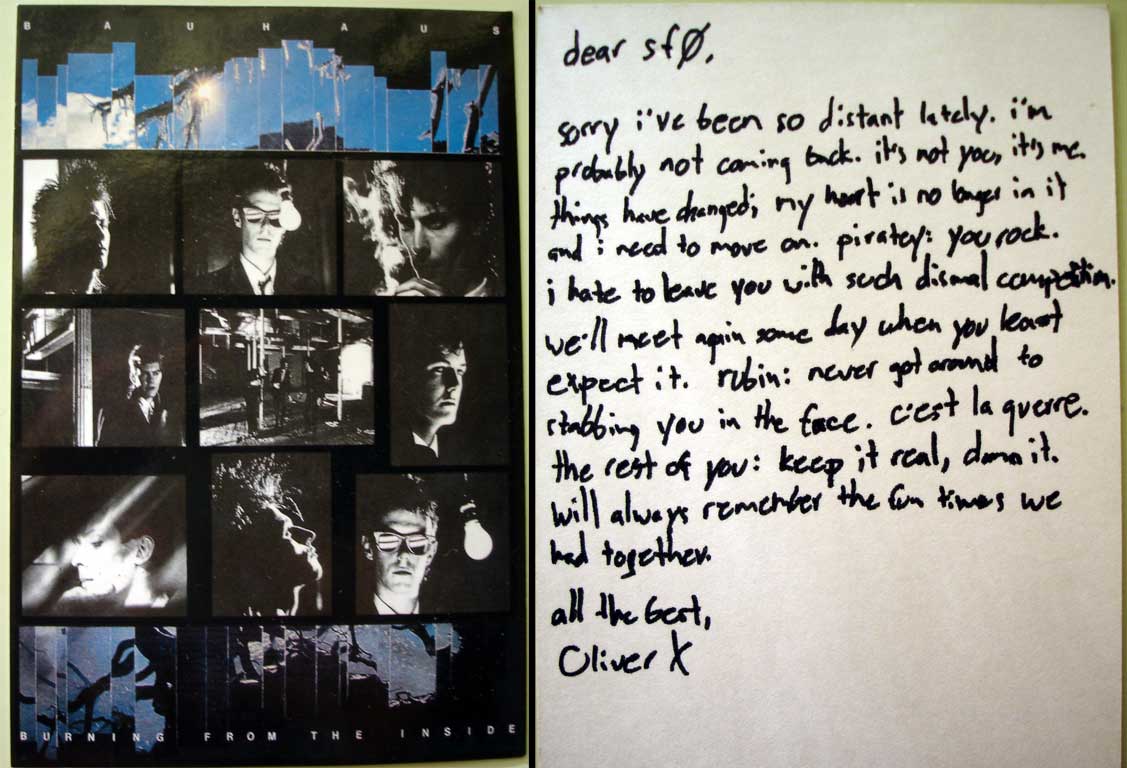 BAUHAUS
BURNING FROM THE INSIDE
dear sfØ,
sorry i've been so distant lately. i'm
probably not coming back. it's not you, it's me.
things have changed; my heart is no longer in it
and i need to move on. piratey: you rock.
i hate to leave you with such dismal competition.
we'll meet again some day when you least
expect it. rubin: never got around to
stabbing you in the face. c'est la guerre.
the rest of you: keep it real, damn it.
will always remember the fun times we
had together.
all the best,
Oliver X